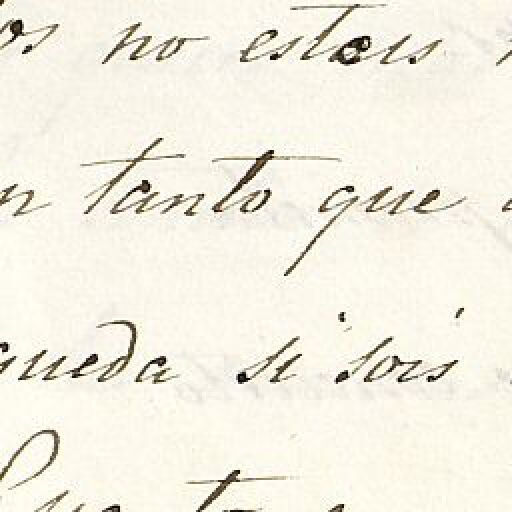 os no esteis
n tanto que
queda si sois